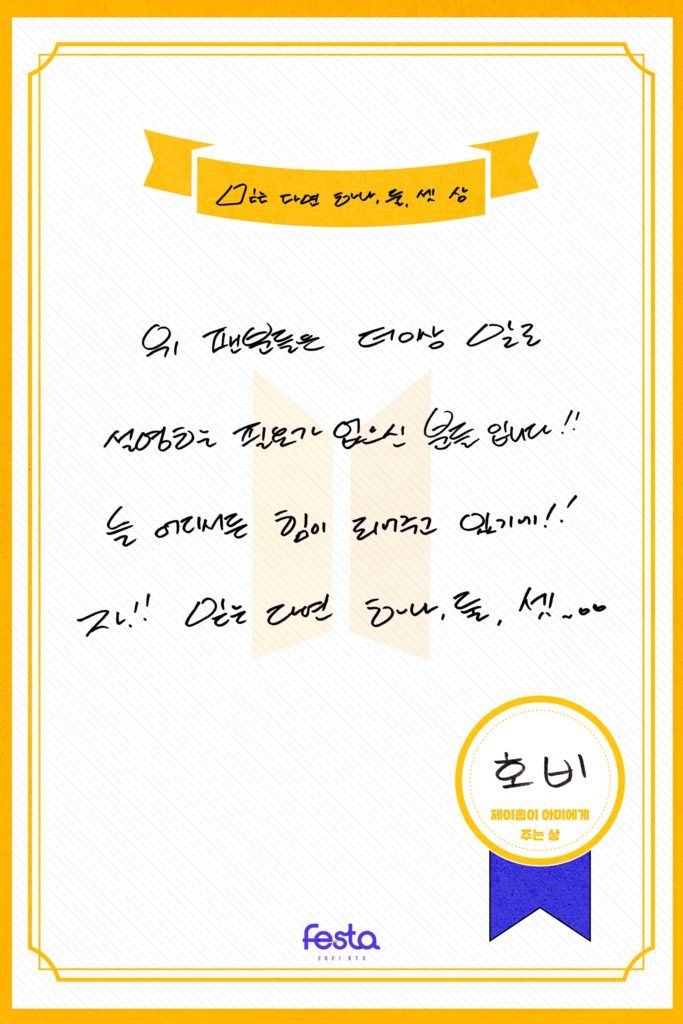 믿는 다면 하나, 둘, 셋 상
위 팬분들은 더이상 말로
설명하는 필요가 없으신 분들 입니다!!
늘 어디서든 힘이 되어주고 있기에!!
자!! 믿는 다면 하나, 둘, 셋~
호비
제이홉이 아미에게
주는 상
festa
2021 BTS